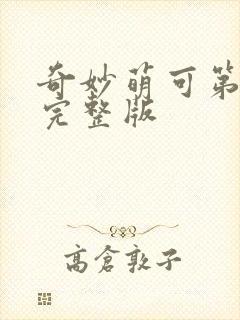 奇妙萌可第
完整版
高倉敦子